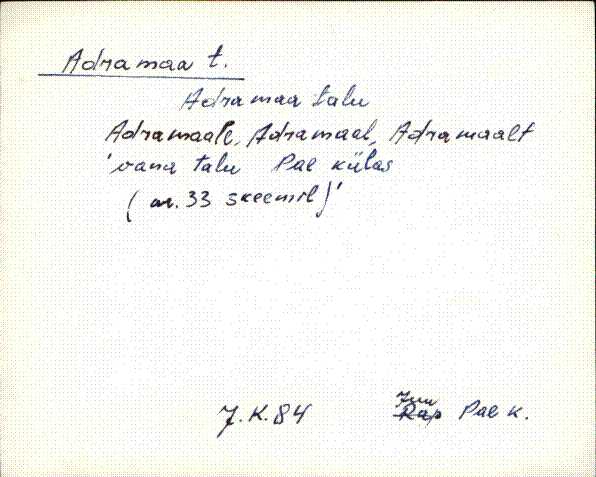 Adramaa t.
Adramaa talu
Adramaale, Adramaal, Adramaalt
'vana talu Pae külas
(nr. 33 skeemil)'
Juu
J.K.84 Rap Pae k.